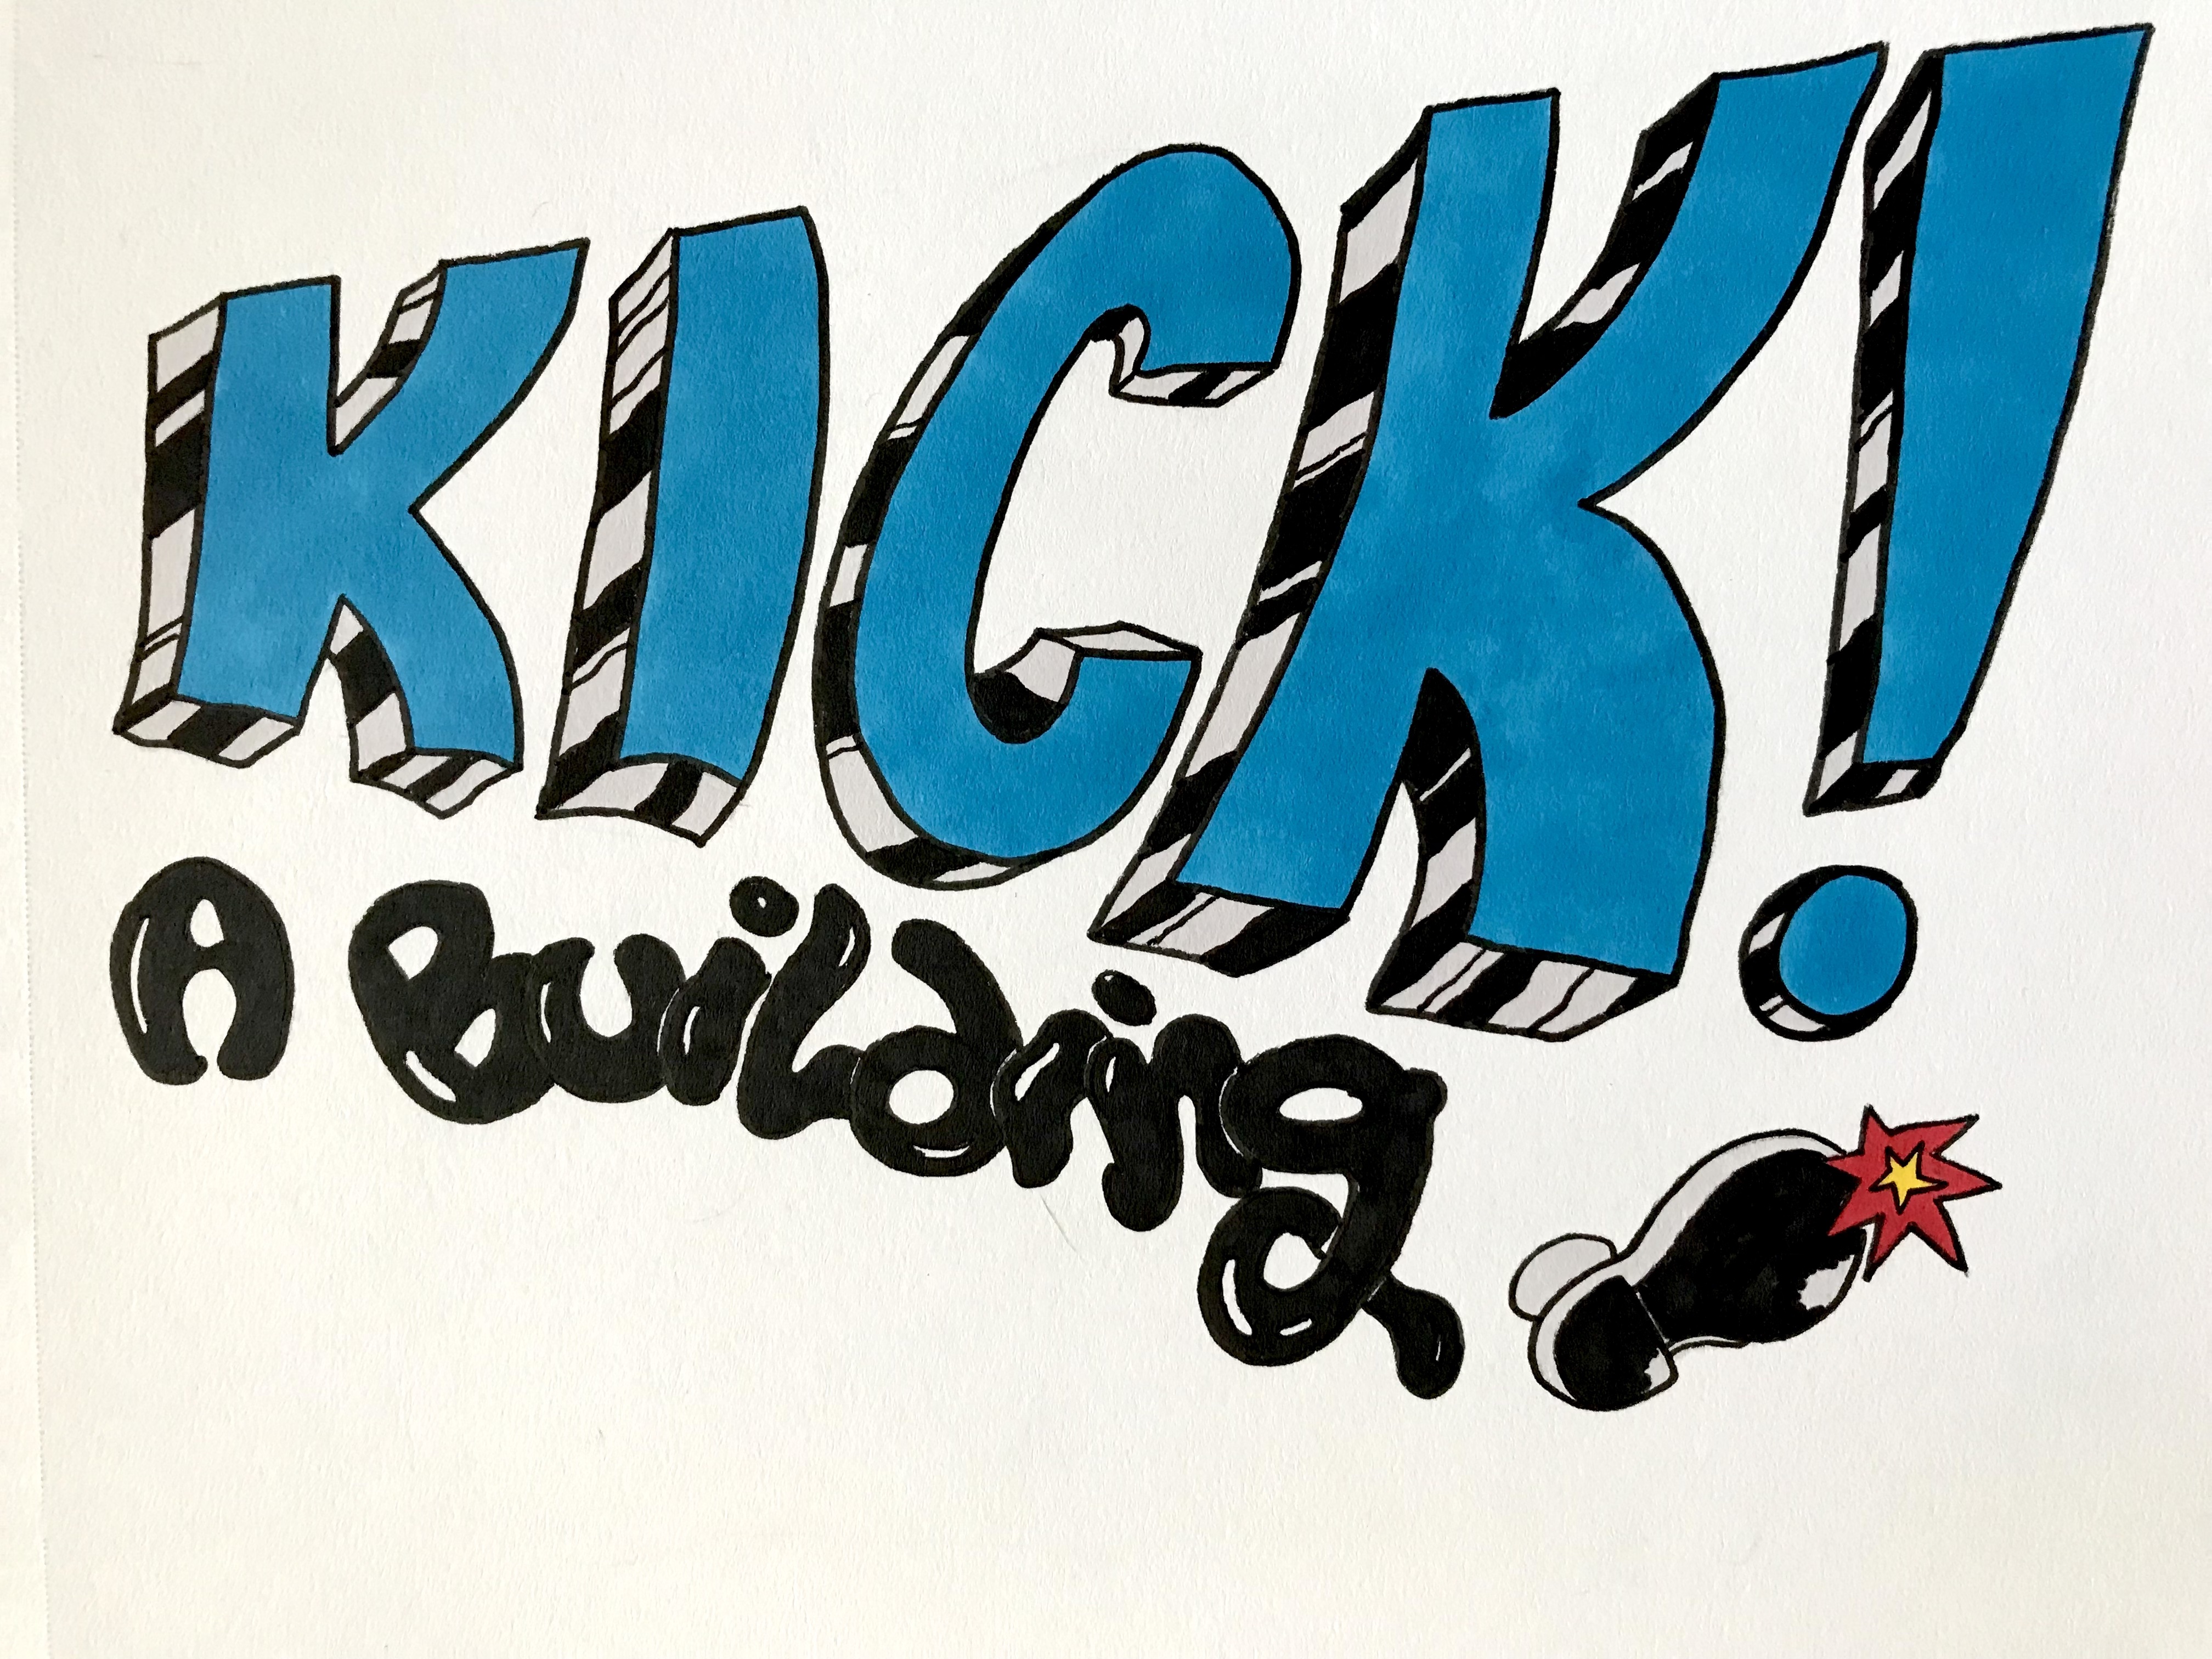 KICK!
A Building